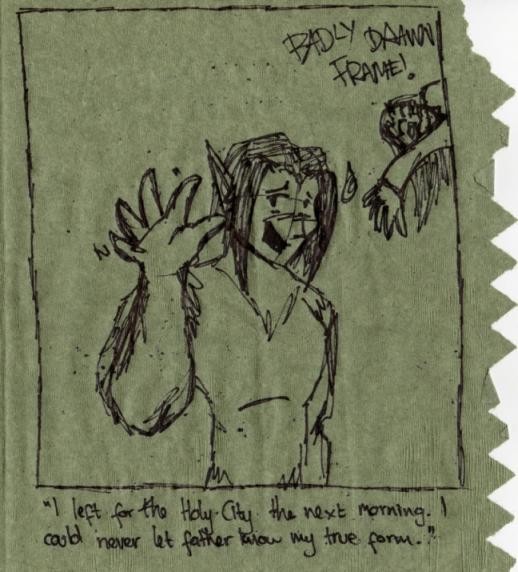 BADLY DRAWN
FRAME!
"I left for the Holy City the next morning. I
could never let father know my true form.."